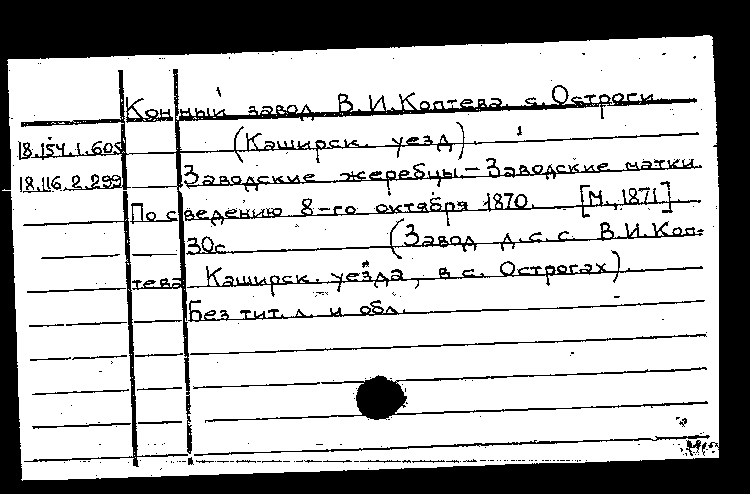 Конный завод В.И.Коптева с. Остроги
18.154.1.605 (Каширск. уезд).
18.116.2.299 Заводские жеребцы.-Заводские матки.
По сведению 8-го октября 1870. [М., 1871].
30с. (Завод д.с.с. В.И.Коп-
тева Каширск. уезда, в с. Острогах).
Без тит. л. и обл.